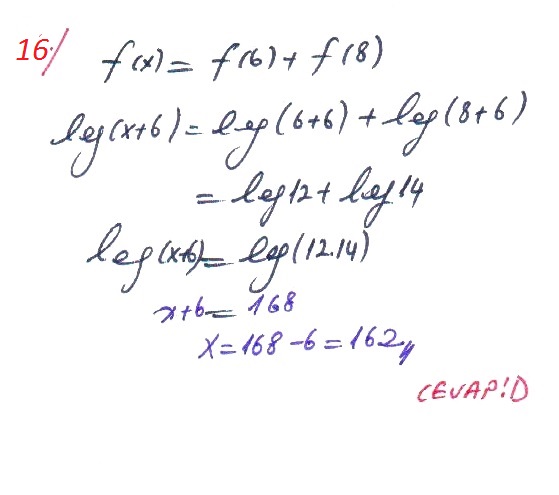 16/ f(x) = f(6) + f(8)
log(x+6) = log(6+6) + log(8+6)
= log12 + log14
log(x+6) = log(12.14)
x+6 = 168
x = 168 - 6 = 162//
CEVAP: D